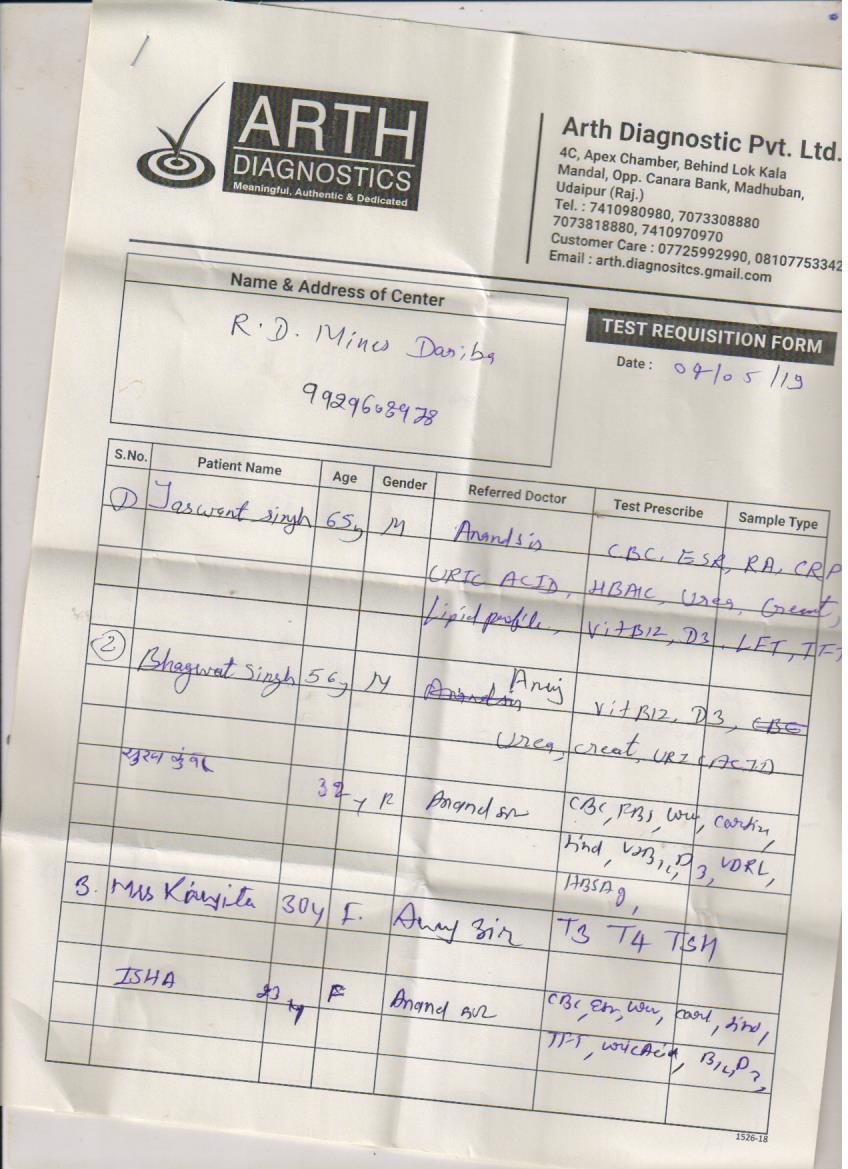 ARTH
DIAGNOSTICS
Meaningful, Authentic & Dedicated
Arth Diagnostic Pvt. Ltd.
4C, Apex Chamber, Behind Lok Kala
Mandal, Opp. Canara Bank, Madhuban,
Udaipur (Raj.)
Tel. : 7410980980, 7073308880
7073818880, 7410970970
Customer Care : 07725992990, 08107753342
Email : arth.diagnositcs.gmail.com
Name & Address of Center
R.D. Mines Dariba
9929608978
TEST REQUISITION FORM
Date : 07/05/19
S.No. Patient Name Age Gender Referred Doctor Test Prescribe Sample Type
1 Jaswant Singh 65y M Anand sir CBC, ESR, RA, CRP
URIC ACID, HBA1C, Urea, Creat,
Lipid profile, Vit B12, D3, LFT, TFT
2 Bhagwat Singh 56y M Anand sir Anuj Vit B12, D3, CBC
Urea, creat, URIC ACID
32 y F Anand sir CBC, RBS,
D3, VDRL,
HBSAg,
3. Mrs 30y F. Anuj Sir T3 T4 TSH
ISHA 23 y F Anand sir CBC, ESR,
TFT, uric Acid, B12, D3,
1526-18